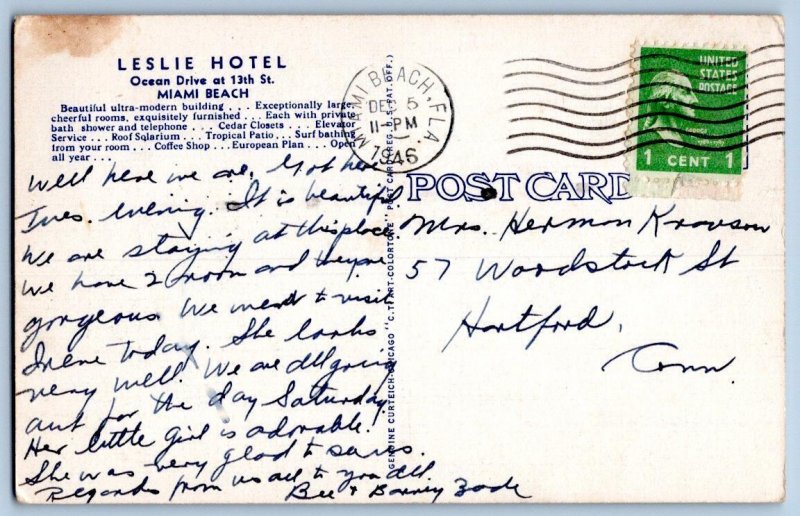 LESLIE HOTEL
Ocean Drive at 13th St.
MIAMI BEACH
Beautiful ultra-modern building . . . Exceptionally large,
cheerful rooms, exquisitely furnished . . . Each with private
bath shower and telephone . . . Cedar Closets . . . Elevator
Service . . . Roof Solarium . . . Tropical Patio . . . Surf bathing
from your room . . . Coffee Shop . . . European Plan . . . Open
all year . . .
Well here we are. Got here
Tues. evening. It is beautiful
We are staying at this place
We have 2 room and they're
gorgeous. We went to visit
Irene today. She looks
very well. We are all going
out for the day Saturday.
Her little girl is adorable!
She was very glad to see us.
Regards from us all to you all
Bee + Barney Zade
GENUINE CURTEICH-CHICAGO "C.T. ART-COLORTONE" POST CARD (REG. U.S. PAT. OFF.)
MIAMI BEACH, FLA.
DEC 5
11-PM
1946
UNITED
STATES
POSTAGE
1 CENT 1
POST CARD
Mrs. Herman Kravson
57 Woodstock St
Hartford,
Conn.